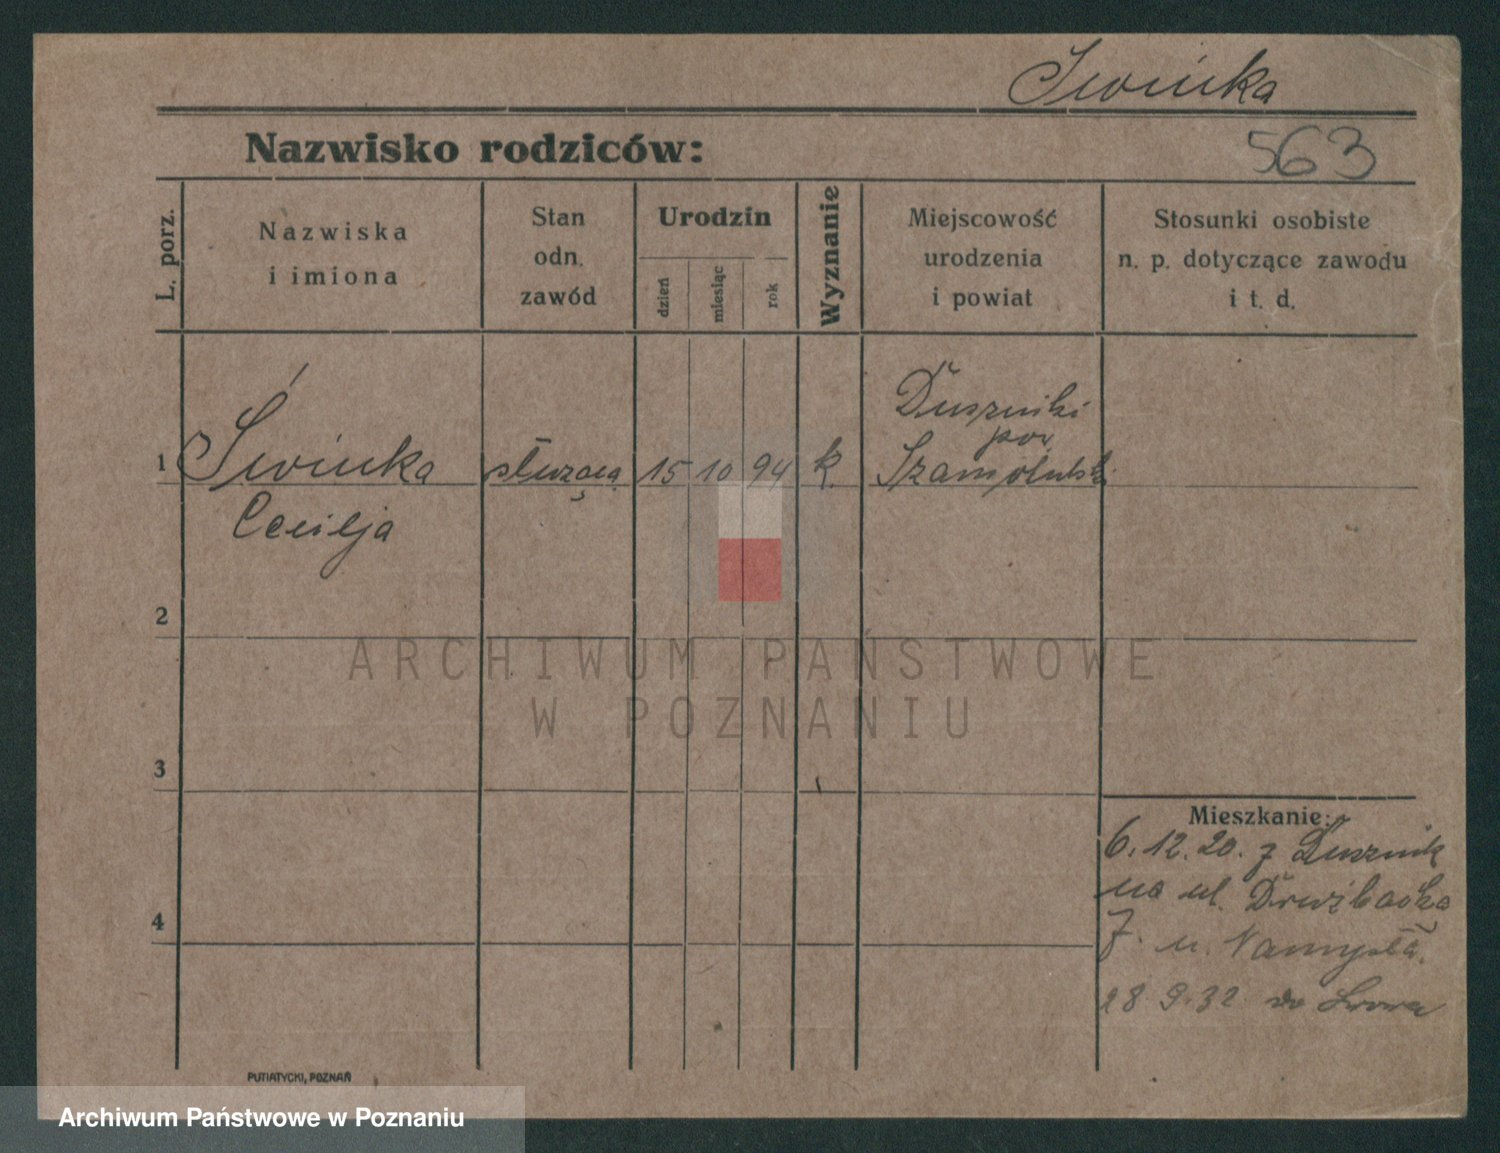 Świnka
Nazwisko rodziców:
563
L. porz.
Nazwiska
i imiona
Stan
odn.
zawód
Urodzin
dzień
miesiąc
rok
Wyznanie
Miejscowość
urodzenia
i powiat
Stosunki osobiste
n. p. dotyczące zawodu
i t. d.
Duszniki
pow
1 Świnka służąca 15 10 94 k. Szamotulski
Cecilja
2
ARCHIWUM PAŃSTWOWE
W POZNANIU
3
Mieszkanie:
6.12.20. z Dusznik
na ul. Drużbacką
4
7. u. Namysła.
28 9.32 do Lwowa
PUTIATYCKI, POZNAŃ
Archiwum Państwowe w Poznaniu